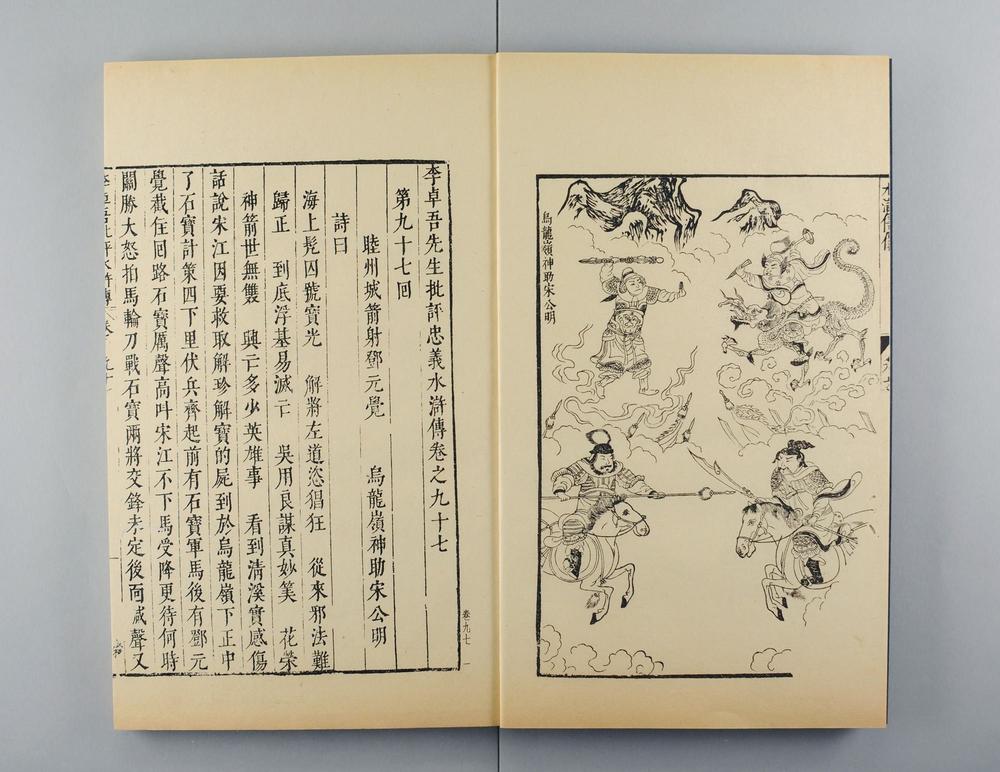 烏龍嶺神助宋公明
李卓吾先生批評忠義水滸傳卷之九十七
第九十七回
睦州城箭射鄧元覺　烏龍嶺神助宋公明
詩曰
海上髡囚號寶光　解將左道恣猖狂　從來邪法難
歸正　到底浮基易滅亡　吳用良謀真妙筭　花榮
神箭世無雙　興亡多少英雄事　看到清溪實感傷
話說宋江因要救取解珍解寶的屍到於烏龍嶺下正中
了石寶計策四下里伏兵齊起前有石寶軍馬後有鄧元
覺截住回路石寶厲聲高叫宋江不下馬受降更待何時
關勝大怒拍馬輪刀戰石寶兩將交鋒未定後面喊聲又
卷九七 一